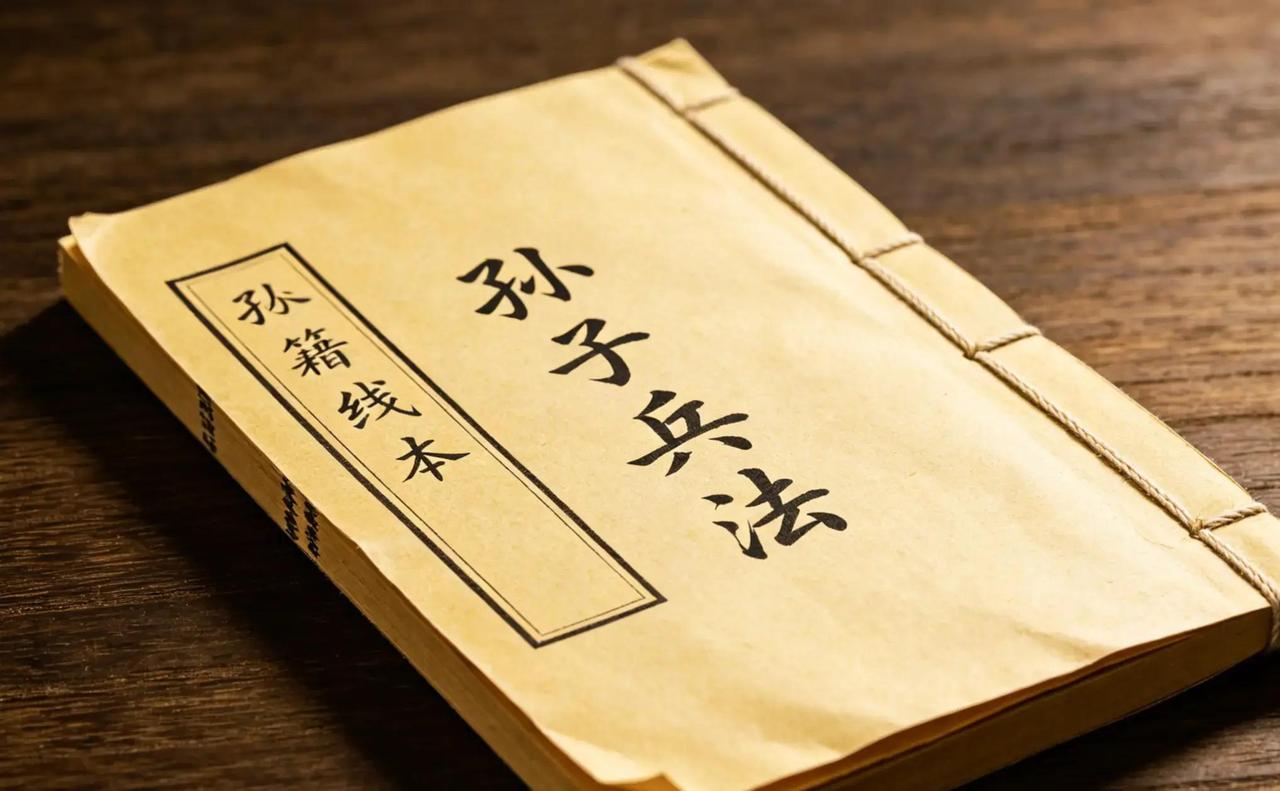 孙子兵法
孙籍线本